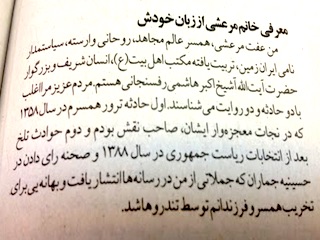 معرفی خانم مرعشی از زبان خودش
من عفت مرعشی، همسر عالم مجاهد، روحانی وارسته، سیاستمدار
نامی ایران زمین، تربیت یافته مکتب اهل بیت(ع)، انسان شریف و بزرگوار
حضرت آیت‌الله آشیخ اکبر هاشمی رفسنجانی هستم. مردم عزیز مرا اغلب
با دو حادثه و دو روایت می‌شناسند. اول حادثه ترور همسرم در سال ۱۳۵۸
که در نجات معجزه‌وار ایشان، صاحب نقش بودم و دوم حوادث تلخ
بعد از انتخابات ریاست جمهوری در سال ۱۳۸۸ و صحنه رای دادن در
حسینیه جماران که جملاتی از من در رسانه‌ها انتشار یافت و بهانه‌یی برای
تخریب همسر و فرزندانم توسط تندروها شد.